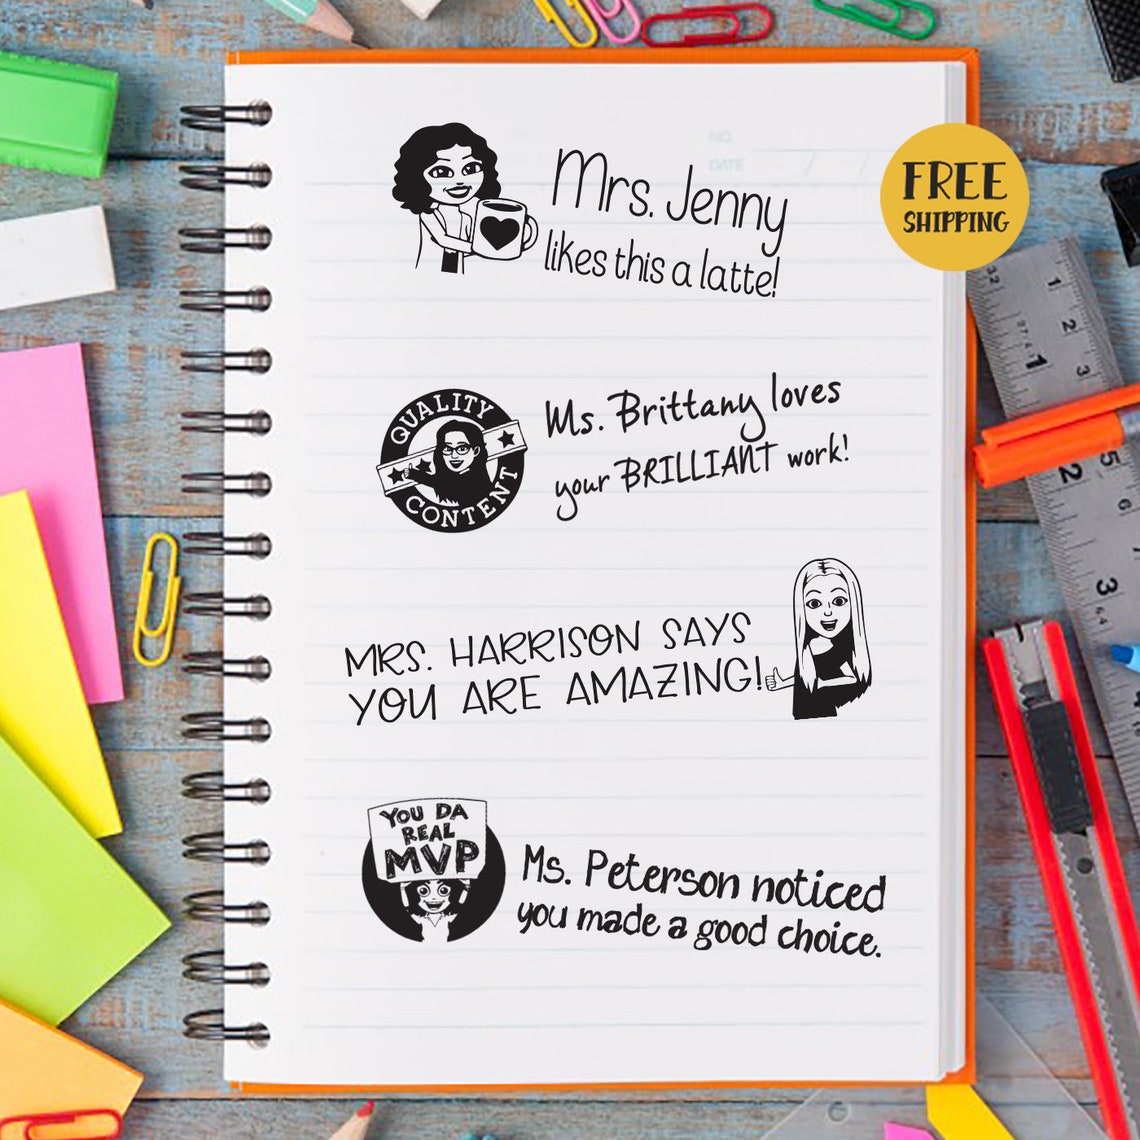 NO.
DATE
Mrs. Jenny
likes this a latte!
FREE
SHIPPING
QUALITY
CONTENT
Ms. Brittany loves
your BRILLIANT work!
MRS. HARRISON SAYS
YOU ARE AMAZING!
YOU DA
REAL
MVP
Ms. Peterson noticed
you made a good choice.
32
1
2
1
2
5
3
64